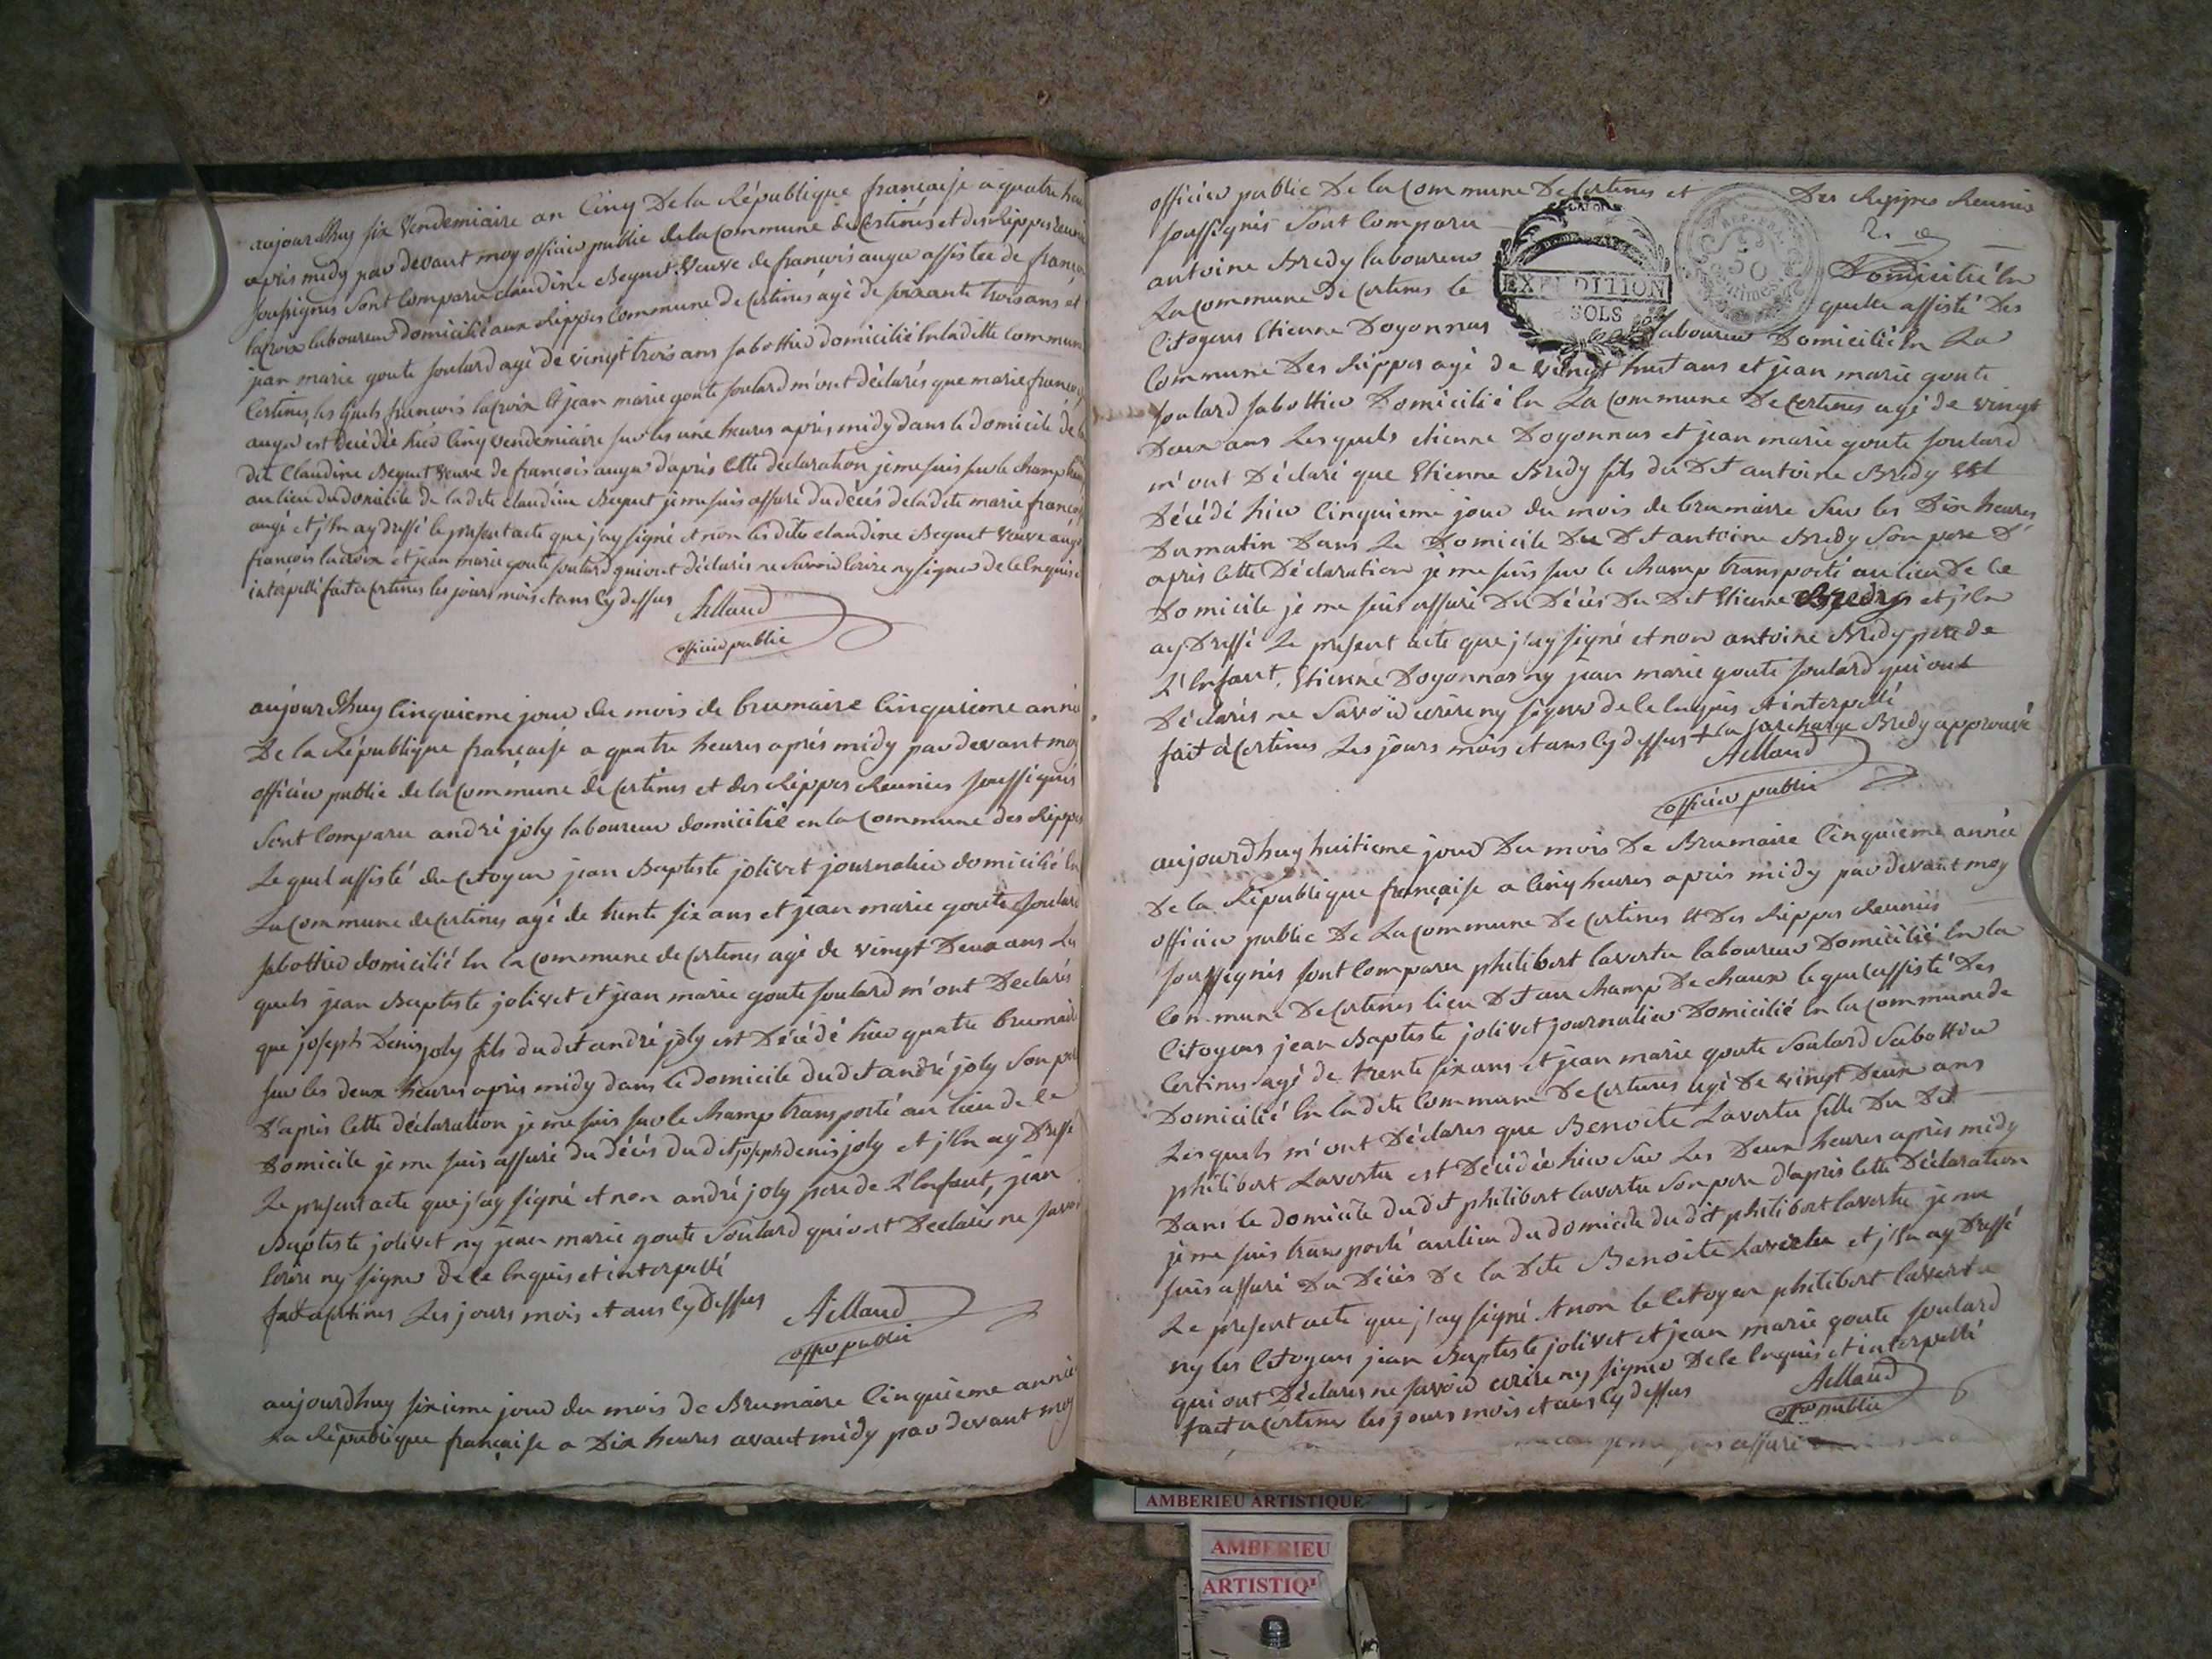 aujourdhuy six Vendemiaire an Cinq De la République française a quatre heu
après midy par devant moy officier public de la Commune de Certines et des Rippes Reunie
soussignés sont Comparu claudine Beguet Veuve de francois auger assistée de franco
lacroix laboureur domicilié aux Rippes Commune de Certines agé de soixante trois ans et
jean marie goute soulard agé de vingt trois ans sabottier domicilié En laditte Commun
Certines, les quels francois lacroix Et jean marie goute soulard m'ont déclarés que marie franco
auger est decédée hier Cinq vendemiaire sur les une heures après midy dans le domicile de la
dite Claudine Beguet Veuve de françois auger d'après Cette declaration je me suis sur le champ
au lieu du domicile de la dite claudine Beguet je me suis assuré du décès de la dite marie franço
augé et j'En ay dressé le present acte que j'ay signé et non les dits claudine Beguet Veuve augé
francois lacroix et jean marie goute soulard qui ont déclarés ne savoir Ecrire ny signer de ce Enquis
interpellé fait a Certines les jours mois et ans Cy dessus
Aillaud
officier public
aujourdhuy Cinquieme jour du mois de brumaire Cinquieme anné
De la République française a quatre heures aprés midy par devant moy
officier public de la Commune de Certines et des Rippes Reunies soussignés
sont Comparu andré joly laboureur domicilié en la Commune des Rippes
Le quel assisté du Citoyen jean Baptiste jolivet journalier domicilié En
La Commune de Certines agé de trente six ans et jean marie goute soulard
sabottier domicilié En la Commune de Certines agé de vingt Deux ans Les
quels jean Baptiste jolivet et jean marie goute soulard m'ont Declarés
que joseph Denis joly fils du dit andré joly est Décédé hier quatre brumaire
sur les deux heures après midy dans le domicile du dit andré joly son pere
D'après Cette déclaration je me suis sur le champ transporté au lieu de ce
Domicile je me suis assuré du décès du dit joseph denis joly et j'En ay Dressé
Le present acte que j'ay signé et non andré joly pere de L'Enfant, jean
Baptiste jolivet ny jean marie goute Soulard qui ont Declarés ne savoir
Ecrire ny signer de ce Enquis et interpellé
fait a Certines Les jours mois et ans Cy Dessus
Aillaud
offer public
aujourdhuy sixieme jour du mois de Brumaire Cinquieme année
La République française a Dix heures avant midy par devant moy
officier public De la Commune De Certines et Des Rippes Reunies
soussignés sont Comparu
antoine Bredy laboureur Domicilié En
La Commune De Certines le quelle assisté Des
Citoyens Etienne Doyonnas laboureur Domicilié En La
EXPEDITION
SOLS
50
Commune Des Rippes agé de vingt huit ans et jean marie goute
soulard sabottier Domicilié En La Commune De Certines agé de vingt
Deux ans Lesquels etienne Doyonnas et jean marie goute soulard
m'ont Déclaré que Etienne Bredy fils du Dit antoine Bredy Est
Décédé hier Cinquieme jour du mois de brumaire Sur les Dix heures
Du matin Dans Le Domicile Du Dit antoine Bredy Son pere D'
après Cette Déclaration je me suis sur le champ transporté au lieu De Ce
Domicile je me suis assuré Du Décès Du Dit Etienne Bredy et j'En
ay Dressé Le present acte que j'ay signé et non antoine Bredy pere de
L'Enfant, Etienne Doyonnas ny jean marie goute soulard qui ont
Déclarés ne Savoir ecrire ny signer de ce Enquis et interpellé
fait à Certines Les jours mois et ans Cy dessus + la surcharge Bredy approuvé
Aillaud
officier public
aujourdhuy huitieme jour Du mois De Brumaire Cinquieme année
De la République française a Cinq heures après midy par devant moy
officier public De La Commune De Certines Et Des Rippes Reunies
soussignés sont Comparu philibert lavertu laboureur Domicilié En la
Commune De Certines lieu Dit au Champ De chaux le quel assisté Des
Citoyens jean Baptiste jolivet journalier Domicilié En la Commune de
Certines agé de trente six ans et jean marie goute Soulard Sabottier
Domicilié En la dite Commune De Certines agé De vingt Deux ans
Lesquels m'ont Déclarés que Benoite Lavertu fille Du Dit
philibert Lavertu est Décédée hier Sur Les Deux heures après midy
Dans le domicile du dit philibert lavertu son pere d'après Cette Déclaration
je me suis transporté au lieu du domicile du dit philibert lavertu je me
suis assuré Du Décès De la Dite Benoite Lavertu et j'En ay Dressé
Le present acte que j'ay signé Et non le Citoyen philibert lavertu
ny les Citoyens jean Baptiste jolivet et jean marie goute soulard
qui ont Déclarés ne savoir ecrire ny signer De ce Enquis et interpellé
fait a Certines les jours mois et ans Cy dessus
Aillaud
offer public
assuré
AMBERIEU ARTISTIQUE
AMBERIEU
ARTISTIQ